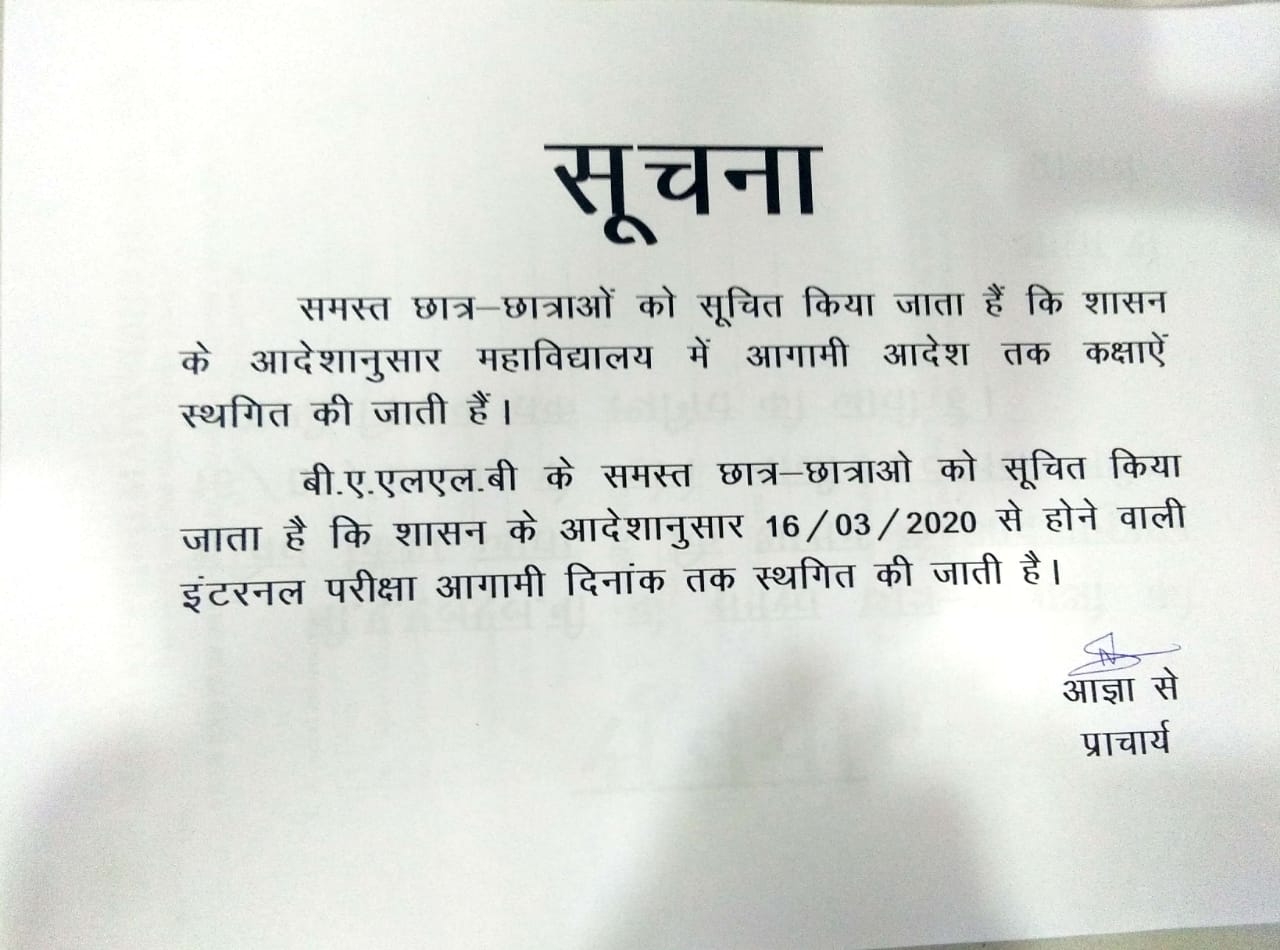 सूचना
समस्त छात्र–छात्राओं को सूचित किया जाता हैं कि शासन
के आदेशानुसार महाविद्यालय में आगामी आदेश तक कक्षाऐं
स्थगित की जाती हैं।
बी.ए.एलएल.बी के समस्त छात्र–छात्राओ को सूचित किया
जाता है कि शासन के आदेशानुसार 16/03/2020 से होने वाली
इंटरनल परीक्षा आगामी दिनांक तक स्थगित की जाती है।
आज्ञा से
प्राचार्य